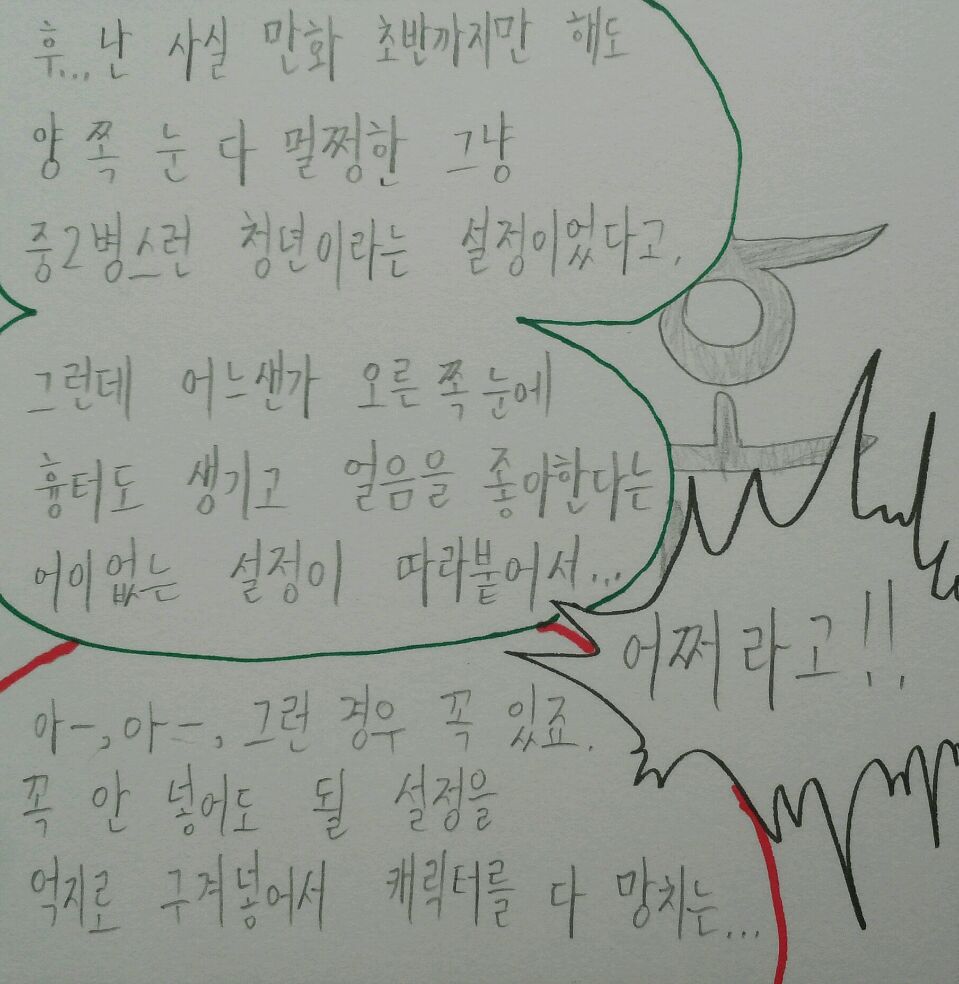 후...난 사실 만화 초반까지만 해도
양쪽 눈 다 멀쩡한 그냥
중2병스런 청년이라는 설정이었다고.
그런데 어느샌가 오른쪽 눈에
흉터도 생기고 얼음을 좋아한다는
어이없는 설정이 따라붙어서...
어쩌라고!!
아-, 아-, 그런 경우 꼭 있죠.
꼭 안 넣어도 될 설정을
억지로 구겨넣어서 캐릭터를 다 망치는...